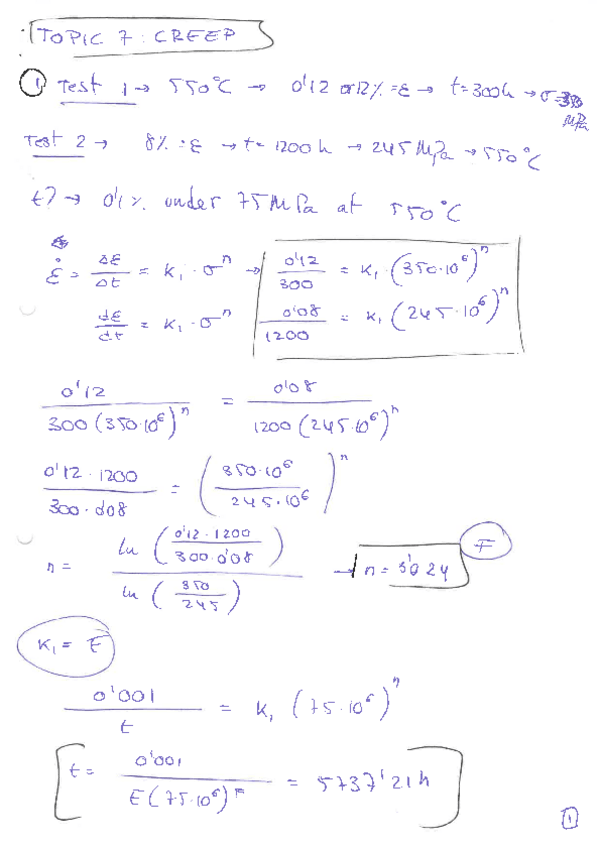 TOPIC 7: CREEP
① Test 1 → 550°C → 0'12 or 12% = ε → t = 300h → σ = 350 MPa
Test 2 → 8% = ε → t = 1200 h → 245 MPa → 550°C
t? → 0'1% under 75 MPa at 550°C
ε̇ = Δε/Δt = K₁ · σⁿ → 0'12/300 = K₁ · (350·10⁶)ⁿ
dε/dt = K₁ · σⁿ 0'08/1200 = K₁ (245·10⁶)ⁿ
0'12/300(350·10⁶)ⁿ = 0'08/1200(245·10⁶)ⁿ
0'12 · 1200/300 · 0'08 = (350·10⁶/245·10⁶)ⁿ
n = ln(0'12 · 1200/300 · 0'08)/ln(350/245) → n = 5'024 F
K₁ = E
0'001/t = K₁ (75·10⁶)ⁿ
t = 0'001/E(75·10⁶)ⁿ = 5737'21h
1